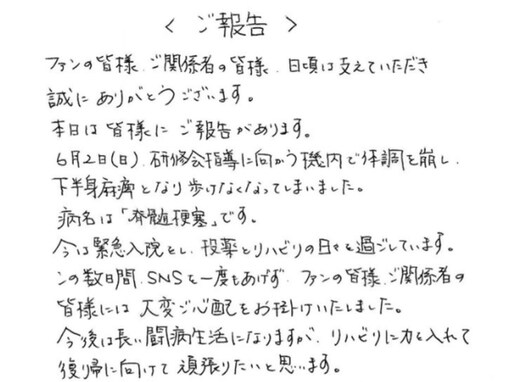 ＜ ご報告 ＞
ファンの皆様、ご関係者の皆様、日頃は支えていただき
誠にありがとうございます。
本日は皆様にご報告があります。
6月2日(日)、研修会指導に向かう機内で体調を崩し、
下半身麻痺となり歩けなくなってしまいました。
病名は「脊髄梗塞」です。
今は緊急入院をし、投薬とリハビリの日々を過ごしています。
この数日間、SNSを一度もあげず、ファンの皆様、ご関係者の
皆様には大変ご心配をお掛けいたしました。
今後は長い闘病生活になりますが、リハビリに力を入れて
復帰に向けて頑張りたいと思います。